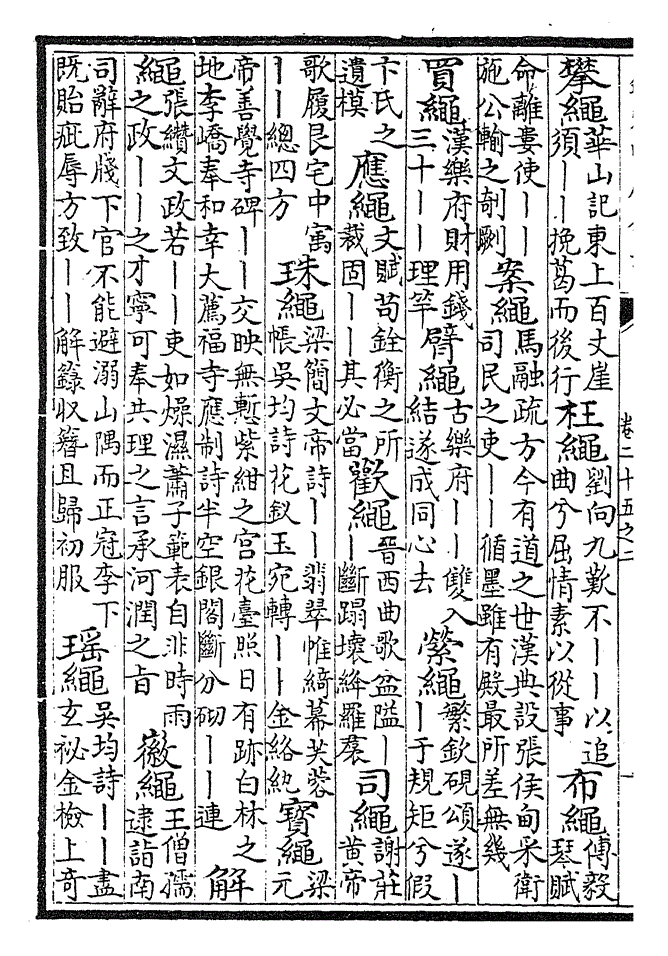 卷二十五之二
攀繩華山記東上百丈崖須丨丨挽葛而後行枉繩劉向九歎不丨丨以追曲兮屈情素以從事布繩傅毅琴賦
命離婁使丨丨施公輸之剞劂案繩馬融疏方今有道之世漢典設張侯甸采衛司民之吏丨丨循墨雖有殿最所差無幾
買繩漢樂府財用錢三十丨丨理竿臂繩古樂府丨丨雙入結遂成同心去縈繩繁欽硯頌遂丨丨于規矩兮假
卞氏之遺模應繩文賦苟銓衡之所裁固丨丨其必當歡繩晉西曲歌盆隘丨丨斷蹋壞絳羅裠司繩謝莊黃帝
歌履艮宅中寓丨丨總四方珠繩梁簡文帝詩丨丨翡翠帷綺幕芙蓉帳吳均詩花釵玉宛轉丨丨金絡紈寶繩梁元
帝善覺寺碑丨丨交映無慙紫紺之宮花臺照日有跡白林之地李嶠奉和幸大薦福寺應制詩半空銀閣斷分砌丨丨連解
繩張纘文政若丨丨吏如燥濕蕭子範表自非時雨之政丨丨之才寧可奉共理之言承河潤之旨徽繩王僧孺逮詣南
司辭府牋下官不能避溺山隅而正冠李下既貽疵辱方致丨丨解籙收簪且歸初服瑶繩吳均詩丨丨盡玄祕金檢上奇